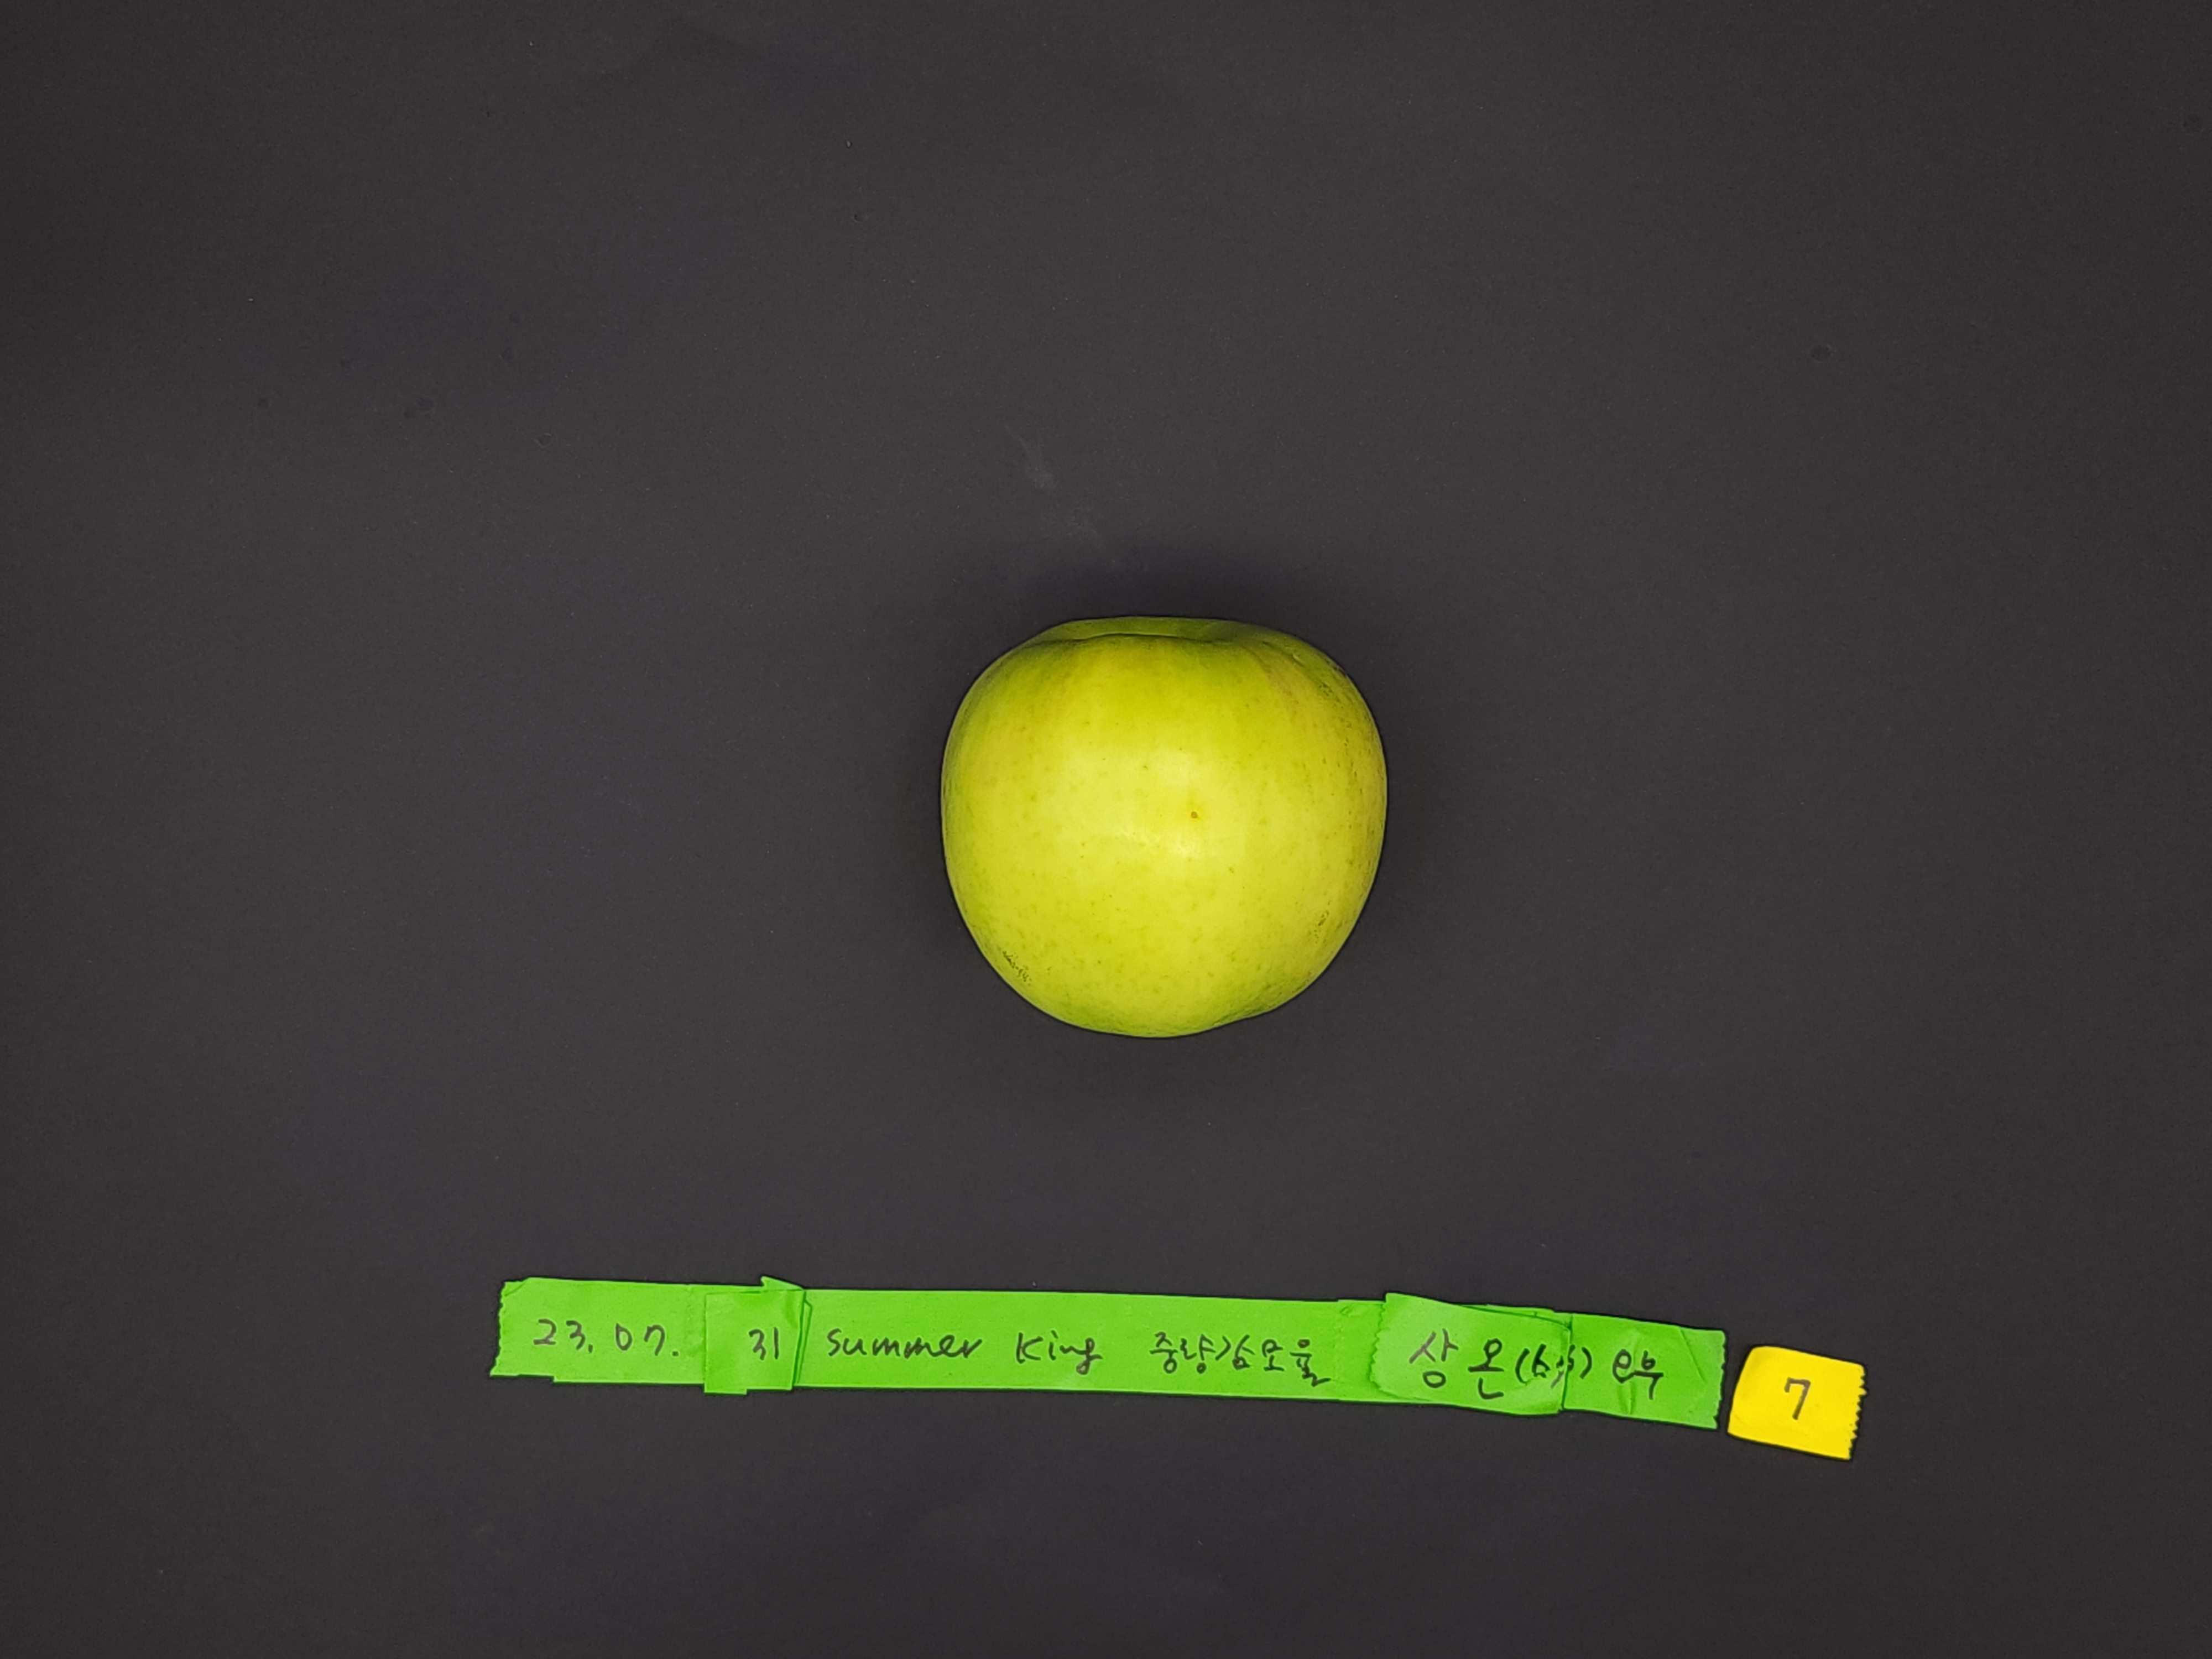 23. 07. 31 summer king 중량감모율 상온 7